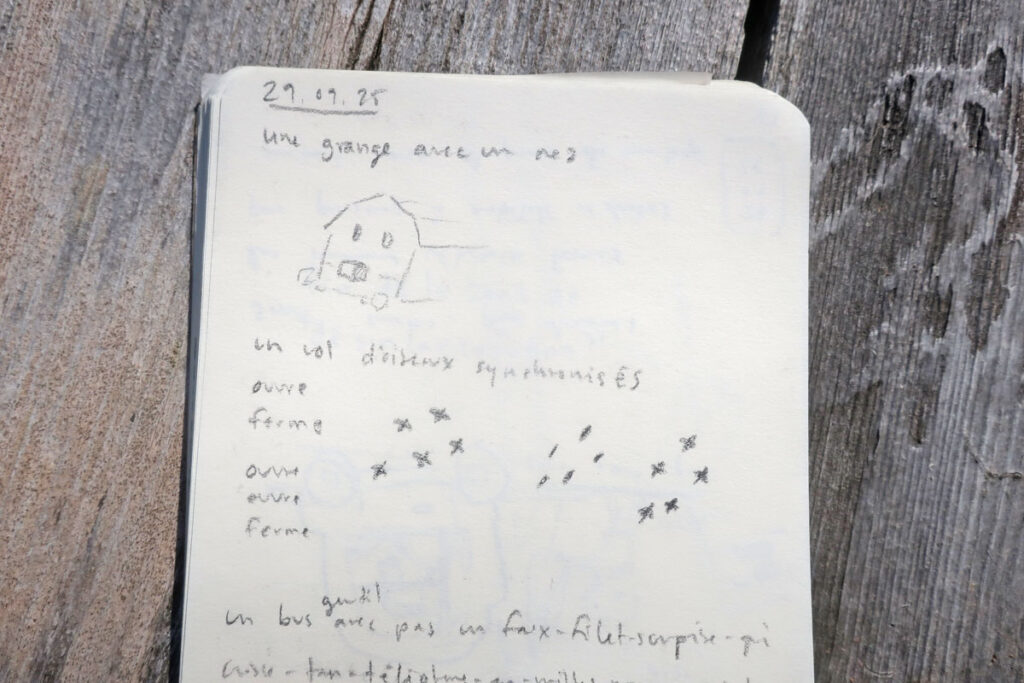 29.09.25
une grange avec un nez
un vol d'oiseaux synchronisÉS
ouvre
ferme
ouvre
ouvre
ferme
gentil
un bus avec pas un faux-filet-surprise-qui